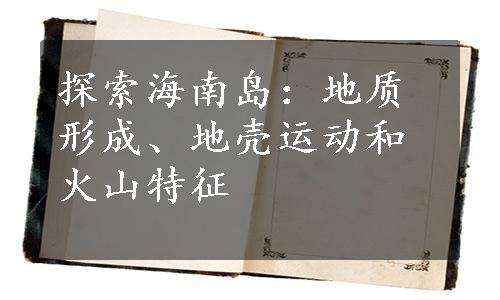 探索海南岛：地质
形成、地壳运动和
火山特征